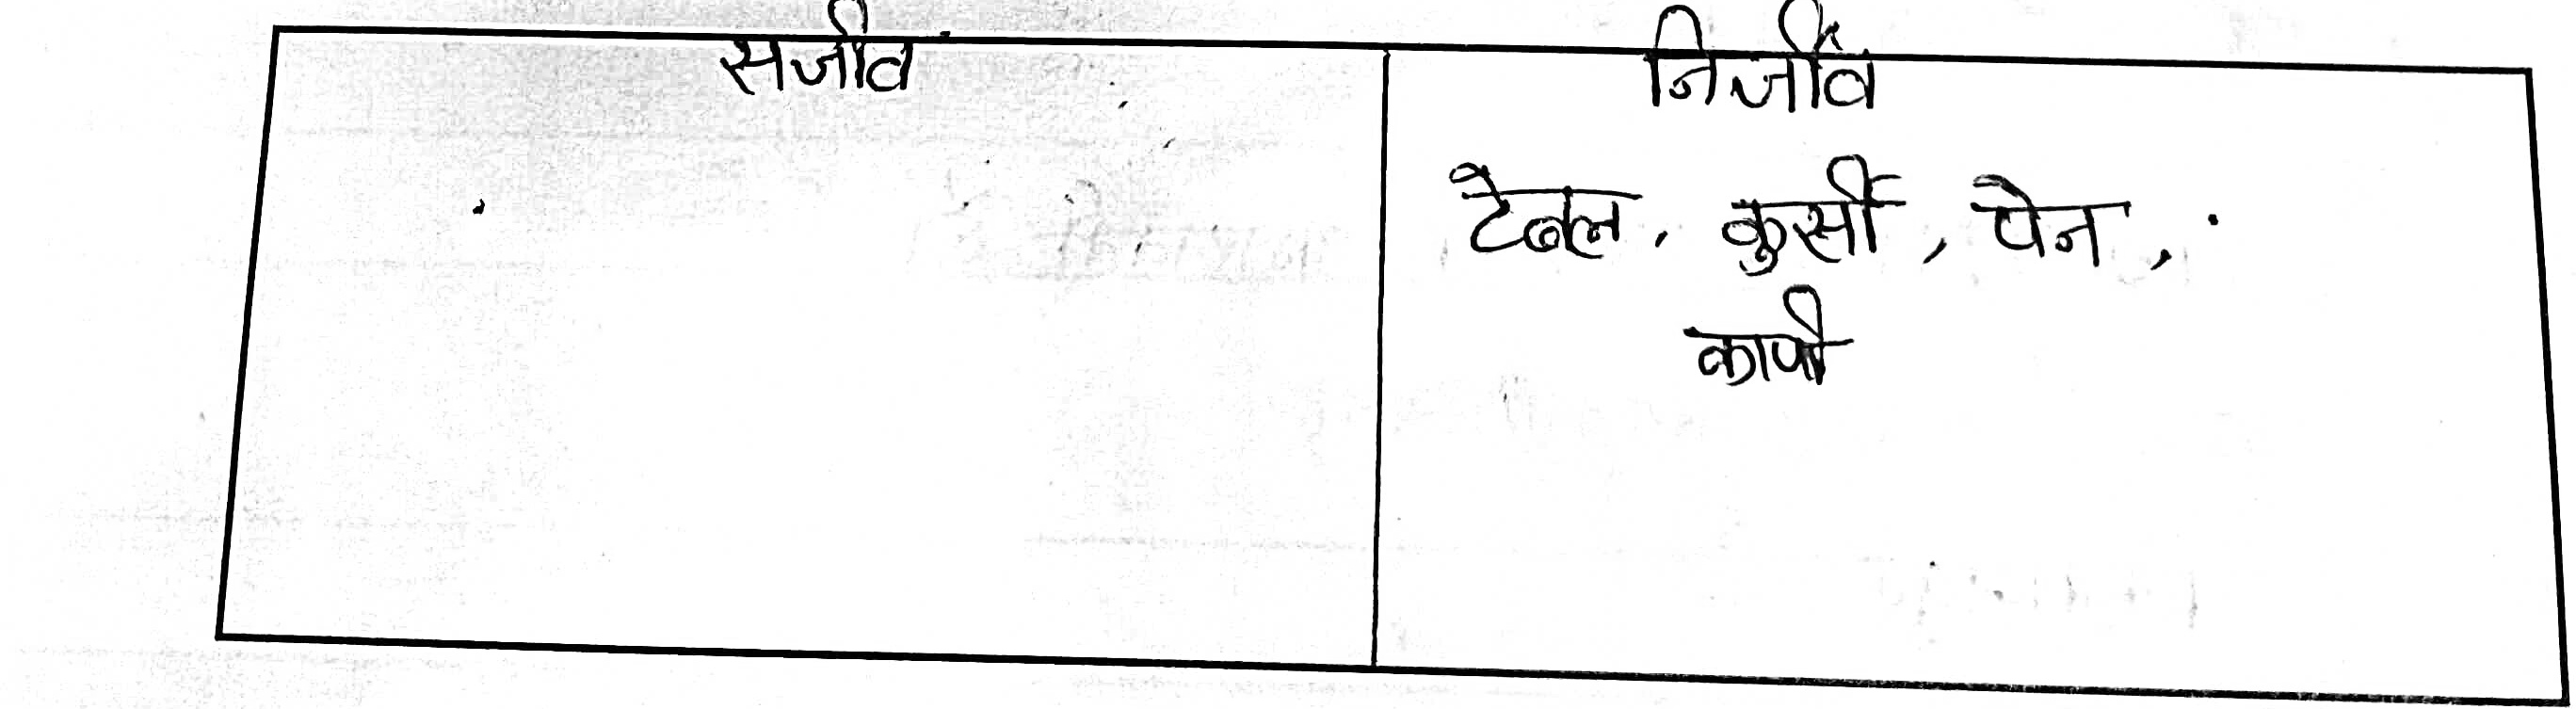 सजीव
निर्जीव
टेबल, कुर्सी, पेन,
कापी